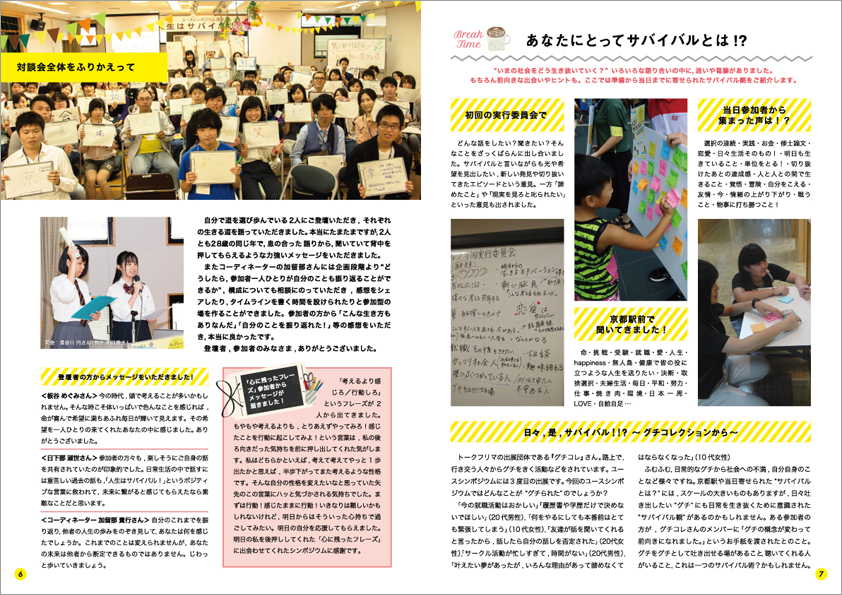 対談会全体をふりかえって
生はサバイバル
自分で道を選び歩んでいる2人にご登壇いただき、それぞれ
の生きる道を語っていただきました。本当にたまたまですが、2人
とも28歳の同じ年で、息の合った語りから、聞いていて背中を
押してもらえるような力強いメッセージをいただきました。
またコーディネーターの加留部さんには企画段階より“ど
うしたら、参加者一人ひとりが自分のことも振り返ることがで
きるか”、構成についても相談にのっていただき、感想をシェ
アしたり、タイムラインを書く時間を設けられたりと参加型の
場を作ることができました。参加者の方から「こんな生き方も
ありなんだ」「自分のことを振り返れた！」等の感想をいただ
き、本当に良かったです。
登壇者、参加者のみなさま、ありがとうございました。
登壇者の方からメッセージをいただきました！
＜板谷 めぐみさん＞ 今の時代、頭で考えることが多いかもし
れません。そんな時こそ体いっぱいで色んなことを感じれば、
命が喜んで希望に満ちあふれる毎日が輝いて見えます。その希
望を一人ひとりの来てくれたあなたの中に感じました。あり
がとうございました。
＜日下部 淑世さん＞ 参加者の方々も、楽しそうにご自身の話
を共有されていたのが印象的でした。日常生活の中で話すに
は重苦しい過去の話も、「人生はサバイバル！」というポジティ
ブな言葉に救われて、未来に繋がると感じてもらえたなら素
敵なことだと思います。
＜コーディネーター 加留部 貴行さん＞ 自分のこれまでを振
り返り、他者の人生の歩みをのぞき見して、あなたは何を感じ
たでしょうか。これまでのことは変えられませんが、あなた
の未来は他者から断定できるものではありません。じわっ
と歩いていきましょう。
「心に残ったフレー
ズ」参加者から
メッセージが
届きました！
「考えるより感
じろ／行動しろ」
というフレーズが2
人から出てきました。
もやもや考えるよりも、とりあえずやってみろ！感じ
たことを行動に起こしてみよ！という言葉は、私の後
ろ向きだった気持ちを前に押し出してくれた気がしま
す。私はどちらかといえば、考えて考えてやっと1歩
出たかと思えば、半歩下がってまた考えるような性格
です。そんな自分の性格を変えたいなと思っていた矢
先のこの言葉にハッと気づかされる気持ちでした。ま
ずは行動！感じたままに行動！いきなりは難しいかも
しれないけれど、明日からはそういった心持ちで過
ごしてみたい。明日の自分を応援してもらえました。
明日の私を後押ししてくれた「心に残ったフレーズ」
に出会わせてくれたシンポジウムに感謝です。
6
Break
Time
あなたにとってサバイバルとは!?
“いまの社会をどう生き抜いていく？” いろいろな語り合いの中に、迷いや葛藤がありました。
もちろん前向きな出会いやヒントも。ここでは準備から当日までに寄せられたサバイバル観をご紹介します。
初回の実行委員会で
どんな話をしたい？聞きたい？そん
なことをざっくばらんに出し合いまし
た。サバイバルと言いながらも光や希
望を見出したい、新しい発見や切り抜い
てきたエピソードという意見。一方「諦
めたこと」や「現実を見ろと叱られたい」
といった意見も出されました。
当日参加者から
集まった声は！？
選択の連続・実践・お金・修士論文・
恋愛・日々生活そのもの！・明日も生
きていること・単位をとる！・切り抜
けたあとの達成感・人と人との間で生
きること・覚悟・冒険・自分をこえる・
友情・今・情緒の上がり下がり・戦う
こと・物事に打ち勝つこと！
京都駅前で
聞いてきました！
命・挑戦・受験・就職・愛・人生・
happiness・無人島・健康で皆の役に
立つような人生を送りたい・決断・取
捨選択・夫婦生活・毎日・平和・努力・
仕事・焼き肉・環境・日本一周・
LOVE・自給自足…
日々、是、サバイバル！！？ ～グチコレクションから～
トークフリマの出展団体である『グチコレ』さん。路上で、
行き交う人々からグチをきく活動などをされています。ユー
スシンポジウムには3度目の出展です。今回のユースシンポ
ジウムではどんなことが“グチられた”のでしょうか？
「今の就職活動はおかしい」「履歴書や学歴だけで決めな
いでほしい」（20代男性）、「何をやるにしても本番前はとて
も緊張してしまう」（10代女性）、「友達が話を聞いてくれる
と言ったから、話したら自分の話しを否定された」（20代女
性）「サークル活動が忙しすぎて、時間がない」（20代男性）、
「叶えたい夢があったが、いろんな理由があって諦めなくて
はならなくなった」（10代女性）
ふむふむ、日常的なグチから社会への不満、自分自身のこ
となど様々ですね。京都駅や当日寄せられた“サバイバル
とは？”には、スケールの大きいものもありますが、日々吐
き出したい“グチ”にも日常を生き抜くために意識された
“サバイバル観”があるのかもしれません。ある参加者の
方が、グチコレさんのメンバーに「グチの概念が変わって
前向きになれました。」というお手紙を渡されたとのこと。
グチをグチとして吐き出せる場があること、聴いてくれる人
がいること、これは一つのサバイバル術？かもしれません。
7